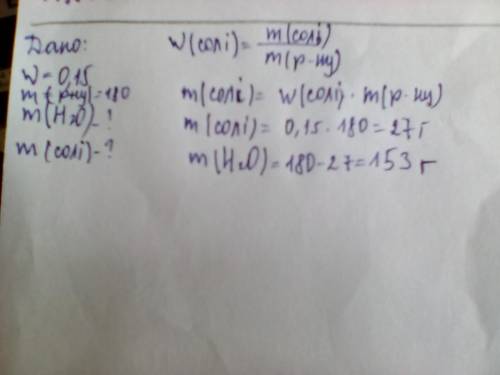 Дано:
W = 0,15
m (р-ну) = 180
m (H₂O) - ?
m (солі) - ?
W(солі) = m(солі) / m(р-ну)
m(солі) = W(солі) · m(р-ну)
m(солі) = 0,15 · 180 = 27 г
m(H₂O) = 180 - 27 = 153 г